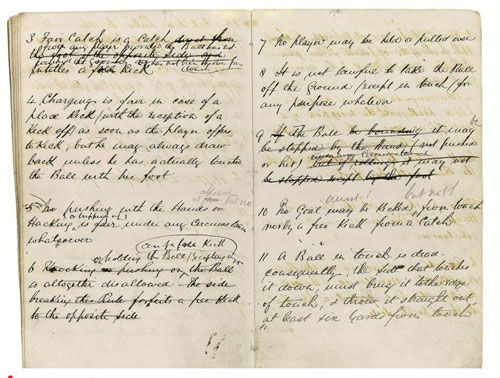 3 Fair Catch is a Catch direct from
from any player provided the Ball has not
the foot of the opposite side and
touched the Ground or has not been thrown from
touch
entitles a free Kick
4 Charging is fair in case of a
place Kick (with the exception of a
Kick off) as soon as the player offers
to Kick, but he may always draw
back unless he has actually touched
the Ball with his foot.
5 No pushing with the Hands or
Hacking, or tripping up
is fair under any circumstances
whatsoever
or holding the Ball
6 Knocking or pushing on the Ball
is altogether disallowed. The side
breaking this Rule forfeits a free Kick
to the opposite side
7 No player may be held or pulled over
8 It is not lawful to take the Ball
off the Ground (except in touch) for
any purpose whatever
9 If the Ball be bounding it may be
be stopped by the Hand (not pushed
or hit)
but if rolling it may not
be stopped except by the foot
must! but not!
10 No Goal may be Kicked from touch
nor by a free Kick from a Catch
11 A Ball in touch is dead
consequently, the side that touches
it down, must bring it to the edge
of touch, & throw it straight out
at least six yards from touch